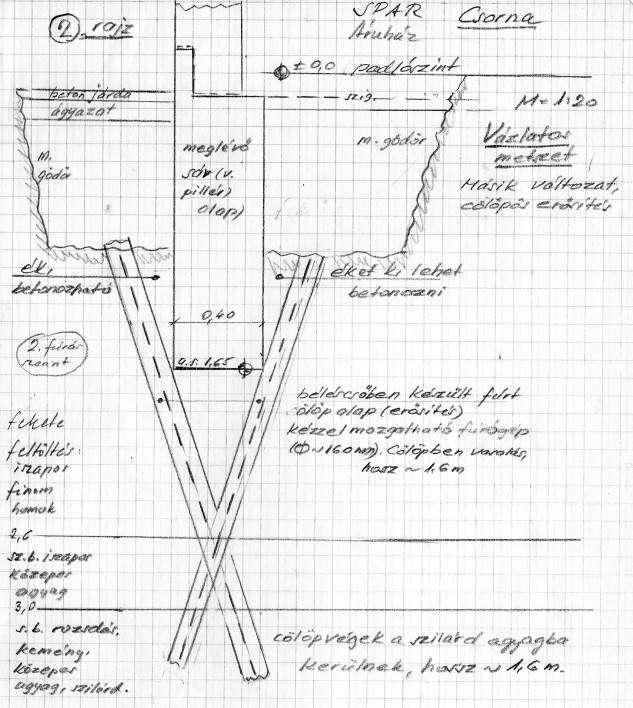 2. rajz
SPAR
Áruház
Csorna
± 0,0 padlószint
M= 1:20
Vázlatos
metszet
Másik változat,
cölöpös erősítés
beton járda
ágyazat
szig.
m.
gödör
m. gödör
meglévő
sáv (v.
pillér)
alap)
ék,
betonozható
éket ki lehet
betonozni
0,40
a.s. 1,65
2. fúrás
szerint
béléscsőben készült fúrt
cölöp alap (erősítés)
kézzel mozgatható fúrógép
(Φ~160mm). Cölöpben vasalás,
hossz ~ 1,6 m
fekete
feltöltés:
iszapos
finom
homok
2,6
sz.b. iszapos
közepes
agyag
3,0
s.b. rozsdás,
kemény,
közepes
agyag, szilárd.
cölöpvégek a szilárd agyagba
kerülnek, hossz ~ 1,6 m.